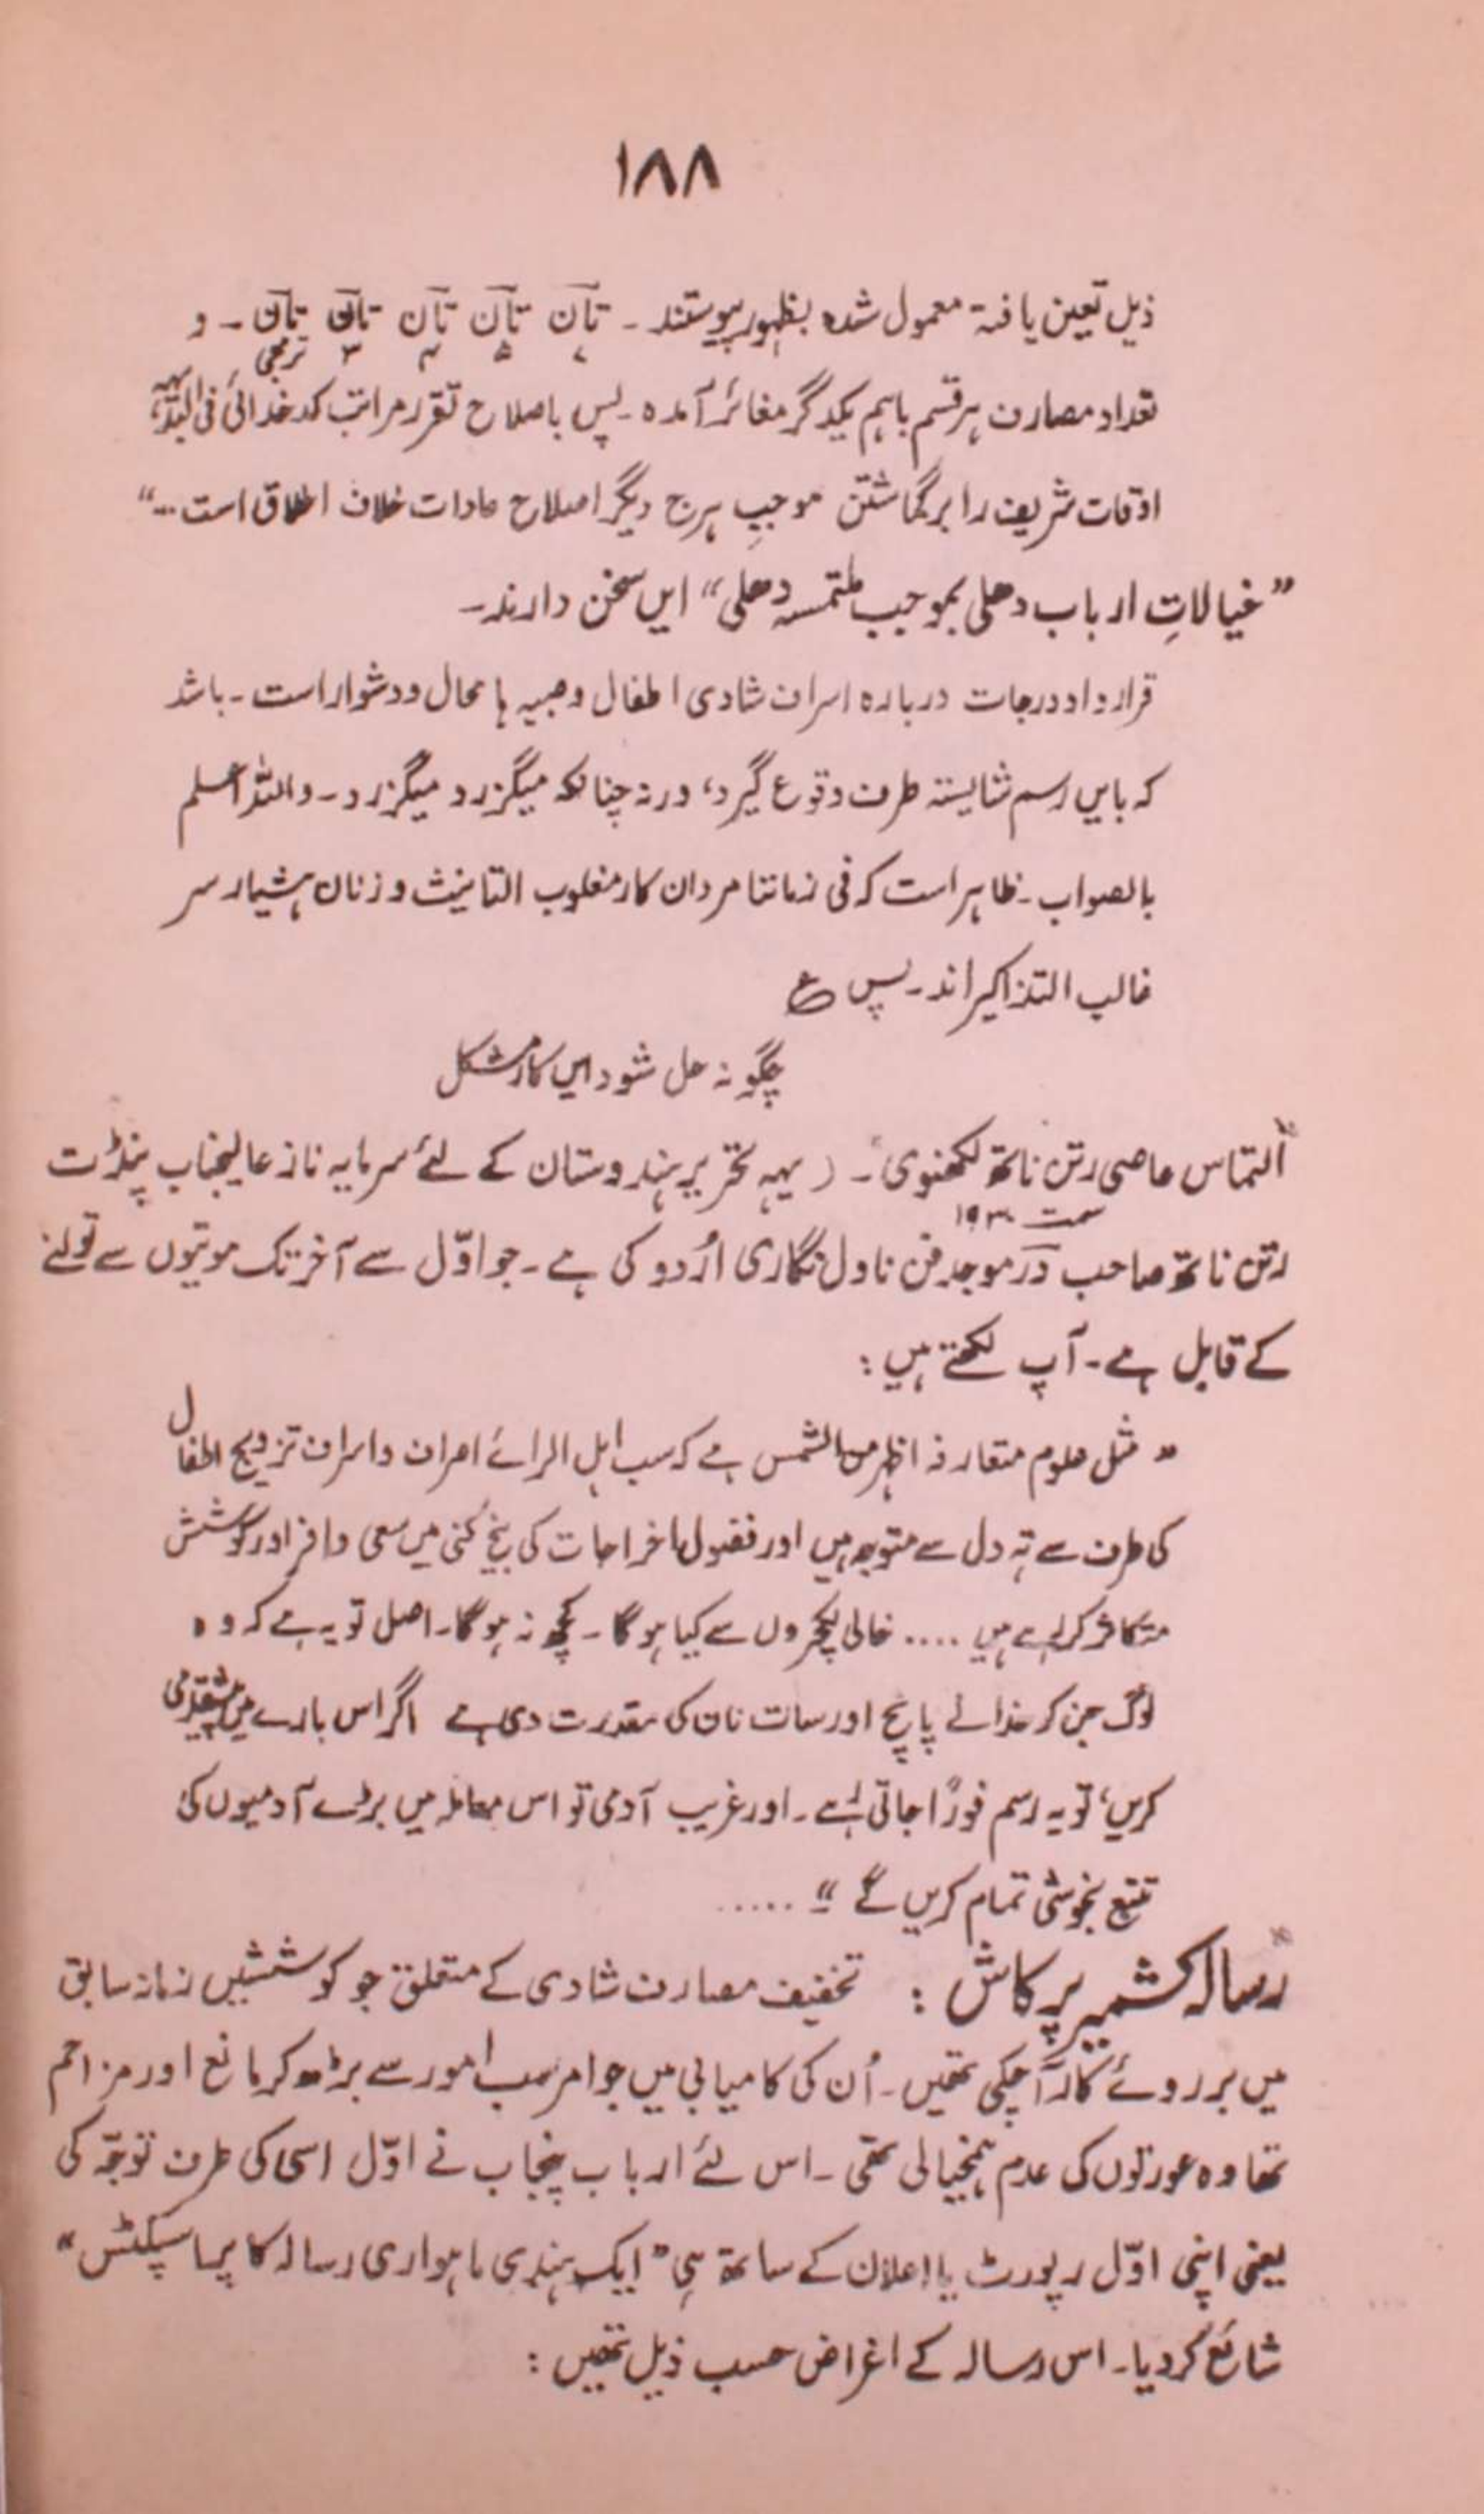 ۱۸۸
ذیل تعین یافتہ معمول شدہ بظہور پیوستند ۔ تان تان تان تان تان ۔ و
۷ ۵ ۴ ۳ ترمجی
تعداد مصارف ہر قسم باہم یکدگر مغائر آمدہ ۔ پس باصلاح تقرر مراتب کدخدائی فی البدیہہ
اوقات شریف را برگماشتن موجبِ ہرج دیگر اصلاح عادات خلاف اطلاق است ...“
”خیالاتِ ارباب دھلی بموجب ملتمسہ دھلی“ ایں سخن دارند ۔
قرارداد درجات دربارہ اسراف شادی اطفال و صبیہ ہا محال و دشوار است ۔ باشد
کہ بایں رسم شایستہ طرف وقوع گیرد، ورنہ چنانکہ میگزرد میگزرد ۔ واللہ اعلم
بالصواب ۔ ظاہر است کہ فی زماننا مردان کار مغلوب التانیث و زنان ہشیار سر
غالب التذاکیر اند ۔ پس ع
چگونہ حل شود ایں کار مشکل
”التماس عاصی رتن ناتھ لکھنوی“ ۔ ( یہہ تحریر ہندوستان کے لئے سرمایہ ناز عالیجناب پنڈت
سمت ۱۹۳۰
رتن ناتھ صاحب در موجد فن ناول نگاری اُردو کی ہے ۔ جو اوّل سے آخر تک موتیوں سے تولنے
کے قابل ہے ۔ آپ لکھتے ہیں :
” مثل علوم متعارفہ اظہر من الشمس ہے کہ سب اہل الرائے اصراف و اسراف تزویج اطفال
کی طرف سے تہ دل سے متوجہ ہیں اور فضول اخراجات کی بیخ کنی میں سعی وافر اور کوشش
متکاثر کر رہے ہیں .... خالی لیکچروں سے کیا ہوگا ۔ کچھ نہ ہوگا ۔ اصل تو یہ ہے کہ وہ
لوگ جن کو خدا نے پانچ اور سات نان کی مقدرت دی ہے اگر اس بارے میں پیشقدمی
کریں، تو یہ رسم فوراً جاتی رہے ۔ اور غریب آدمی تو اس معاملہ میں بڑے آدمیوں کی
تتبع بخوشی تمام کریں گے “ .....
رسالہ کشمیر پرکاش : تخفیف مصارف شادی کے متعلق جو کوششیں زمانہ سابق
میں بر روئے کار آ چکی تھیں ۔ اُن کی کامیابی میں جو امر سب امور سے بڑھ کر مانع اور مزاحم
تھا وہ عورتوں کی عدم ہمخیالی تھی ۔ اس لئے ارباب پنجاب نے اوّل اسی کی طرف توجّہ کی
یعنی اپنی اوّل رپورٹ یا اعلان کے ساتھ ہی ”ایک ہندی ماہواری رسالہ کا پراسپکٹس“
شائع کر دیا ۔ اس رسالہ کے اغراض حسب ذیل تھیں :